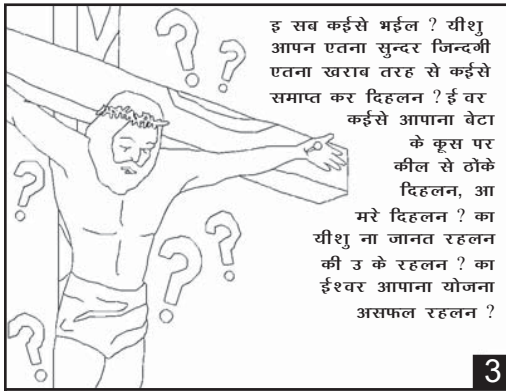 इ सब कईसे भईल ? यीशु
आपन एतना सुन्दर जिन्दगी
एतना खराब तरह से कईसे
समाप्त कर दिहलन ? ई वर
कईसे आपाना बेटा
के कूस पर
कील से ठोंके
दिहलन, आ
मरे दिहलन ? का
यीशु ना जानत रहलन
की उ के रहलन ? का
ईश्वर आपाना योजना
असफल रहलन ?
3